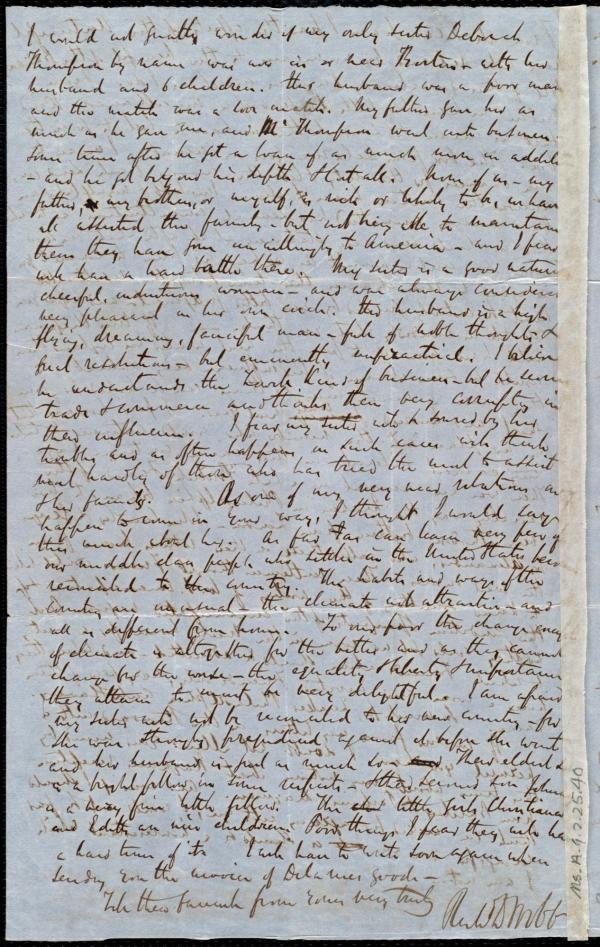 I would not greatly wonder if my only sister Deborah
Thompson by name was now in or near Boston with her
husband and 6 children. Her husband was a poor man
and the match was a love match. My father gave her as
much as he gave me, and Mr Thompson went into business.
Some time after he got a loan of as much more in addition
- and he got beyond his depth & lost all. None of us - my
father, my brothers, or myself, is rich or likely to be, we have
all assisted the family - but not being able to maintain
them they have gone unwillingly to America - and I fear
will have a hard battle there. My sister is a good natured
cheerful, industrious woman - and was always considered
very pleasant in her own circle. Her husband is a high
flying, dreamy, fanciful man - full of noble thoughts &
good resolutions - but eminently unpractical. I believe
he understands the hard kind of business - but he scorns
trade & commerce and thinks them very corrupting in
their influence. I fear my sister will be soured by her
troubles and as often happens in such cases will think
most hardly of those who has tried the most to assist
her family. As one of my very near relations may
happen to come in your way, I thought I would say
this much about her. As far as I can learn very few of
our middle class people who settle in the United States become
reconciled to the country. The habits and ways of the
country are unusual - the climate not attractive - and
all is different from home. To our poor the change
of climate is altogether for the better and as they cannot
change for the worse - the equality & liberty & importance
they attain to must be very delightful. I am afraid
my sister will not be reconciled to her new country - for
she was strongly prejudiced against it before she went
and her husband is just as much so. Their eldest
is a bright fellow in some respects - & the second son John
is a very fine little fellow. The little girls Christiana
and Edith are nice children. Poor things I fear they will have
a hard time of it. I will have to write soon again when
sending you the invoice of Delames goods -
Till then farewell from yours very truly
Richd D Webb
Ms. A. 9. 2. 25. 40